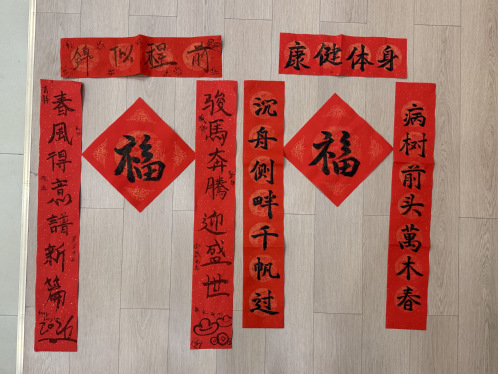 前程似錦
骏馬奔騰迎盛世
春風得意譜新篇
福
身体健康
沉舟侧畔千帆过
病树前头萬木春
福